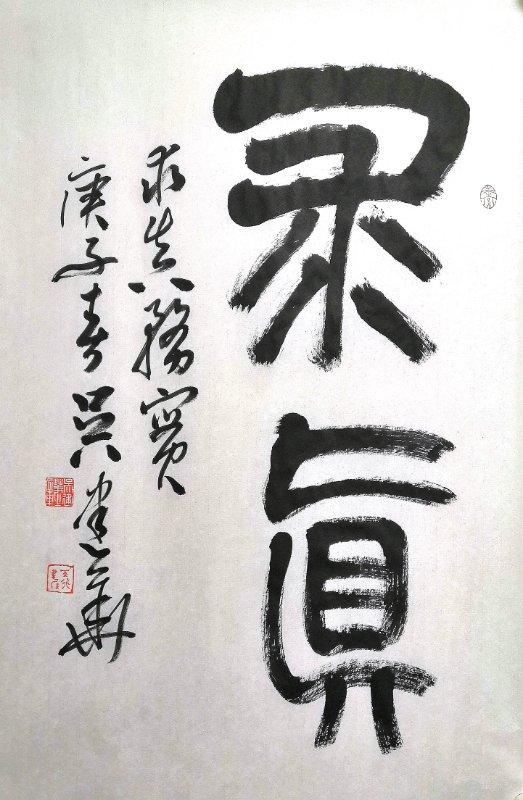 求真
求真務實
庚子春吳建華